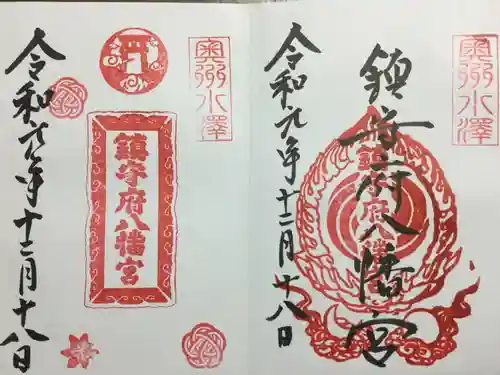 奥州水澤
鎮守府八幡宮
鎮守府八幡
令和元年十二月十八日
奥州水澤
鎮守府八幡宮
令和元年十二月十八日